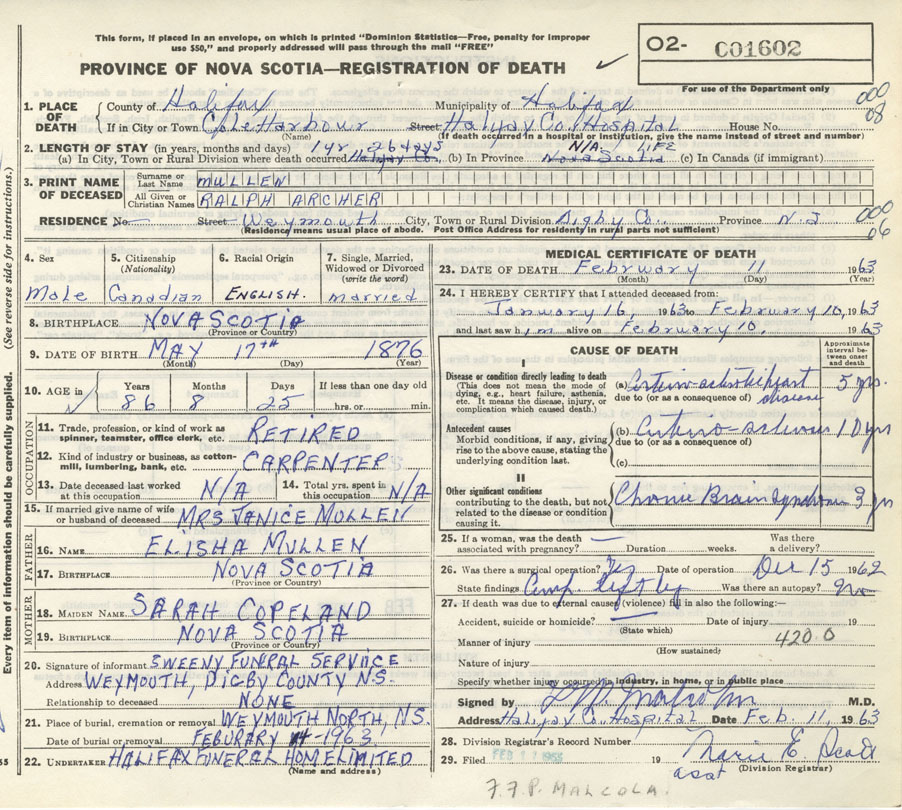 This form, if placed in an envelope, on which is printed "Dominion Statistics—Free, penalty for improper
use $50," and properly addressed will pass through the mail "FREE"
PROVINCE OF NOVA SCOTIA—REGISTRATION OF DEATH ✓
O2- C01602
For use of the Department only
1. PLACE OF DEATH { County of Halifax Municipality of Halifax 000
If in City or Town Cole Harbour Street Halifax Co. Hospital House No. 08
(Name) (If death occurred in a hospital or institution, give the name instead of street and number)
2. LENGTH OF STAY (in years, months and days) 1 yr 26 days N/A LIFE
(a) In City, Town or Rural Division where death occurred Halifax Co. (b) In Province Nova Scotia (c) In Canada (if immigrant)
3. PRINT NAME OF DECEASED { Surname or Last Name MULLEN
All Given or Christian Names RALPH ARCHER
RESIDENCE No. Street Weymouth City, Town or Rural Division Digby Co. Province N.S 000
(Residence means usual place of abode. Post Office Address for residents in rural parts not sufficient) 06
(See reverse side for instructions.)
Every item of information should be carefully supplied.
4. Sex 5. Citizenship (Nationality) 6. Racial Origin 7. Single, Married, Widowed or Divorced (write the word)
Male Canadian ENGLISH. married
8. BIRTHPLACE NOVA SCOTIA
(Province or Country)
9. DATE OF BIRTH MAY 17TH 1876
(Month) (Day) (Year)
10. AGE in Years Months Days If less than one day old
86 8 25 hrs. or min.
OCCUPATION
11. Trade, profession, or kind of work as spinner, teamster, office clerk, etc. RETIRED
12. Kind of industry or business, as cotton-mill, lumbering, bank, etc. CARPENTER
13. Date deceased last worked at this occupation N/A 14. Total yrs. spent in this occupation N/A
15. If married give name of wife or husband of deceased MRS JANICE MULLEN
FATHER
16. NAME ELISHA MULLEN
17. BIRTHPLACE NOVA SCOTIA
(Province or Country)
MOTHER
18. MAIDEN NAME SARAH COPELAND
19. BIRTHPLACE NOVA SCOTIA
(Province or Country)
20. Signature of informant SWEENY FUNERAL SERVICE
Address WEYMOUTH, DIGBY COUNTY N.S.
Relationship to deceased NONE
21. Place of burial, cremation or removal WEYMOUTH NORTH, N.S.
Date of burial or removal FEBURARY 14-1963
22. UNDERTAKER HALIFAX FUNERAL HOME LIMITED
(Name and address)
MEDICAL CERTIFICATE OF DEATH
23. DATE OF DEATH February 11 1963
(Month) (Day) (Year)
24. I HEREBY CERTIFY that I attended deceased from:
January 16, 1963 to February 10, 1963
and last saw him alive on February 10 1963
CAUSE OF DEATH
Approximate interval between onset and death
I
Disease or condition directly leading to death
(This does not mean the mode of dying, e.g., heart failure, asthenia, etc. It means the disease, injury, or complication which caused death.)
(a) heart disease 5 yrs.
due to (or as a consequence of)
Antecedent causes
Morbid conditions, if any, giving rise to the above cause, stating the underlying condition last.
(b) 10 yrs
due to (or as a consequence of)
(c)
II
Other significant conditions
contributing to the death, but not related to the disease or condition causing it.
Chronic Brain Syndrome 3 yrs
25. If a woman, was the death associated with pregnancy? — Duration weeks. Was there a delivery?
26. Was there a surgical operation? Yes Date of operation Dec 15 1962
State findings Amp. left leg Was there an autopsy? No
27. If death was due to external causes (violence) fill in also the following:—
Accident, suicide or homicide? Date of injury 19
(State which)
Manner of injury 420.0
(How sustained)
Nature of injury
Specify whether injury occurred in industry, in home, or in public place
Signed by Malcolm M.D.
Address Halifax Co. Hospital Date Feb. 11, 1963
28. Division Registrar's Record Number
29. Filed 19 Marie E. Scott
asst (Division Registrar)
F.F.P. MALCOLA.